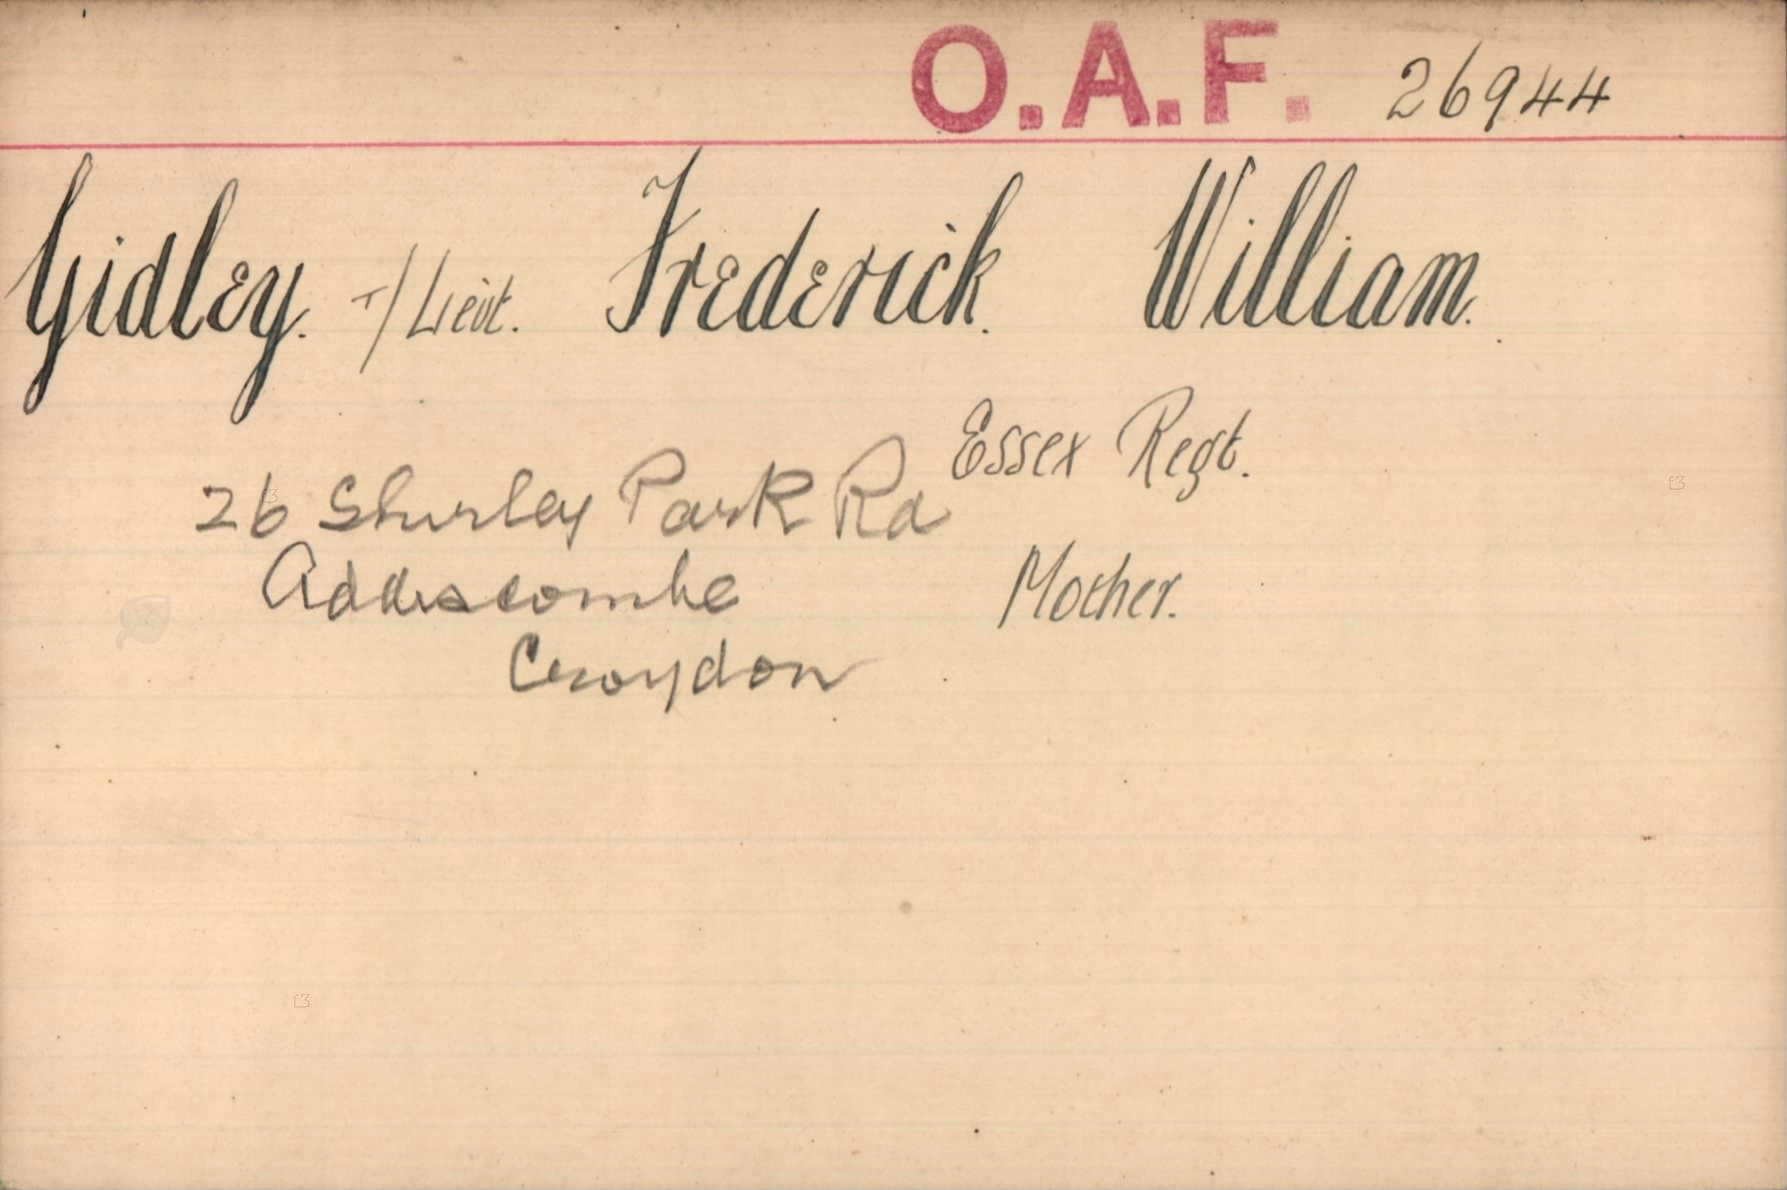 O.A.F. 26944
Gidley. T/Lieut. Frederick. William.
Essex Regt.
26 Shirley Park Rd
Addiscombe Mother.
Croydon